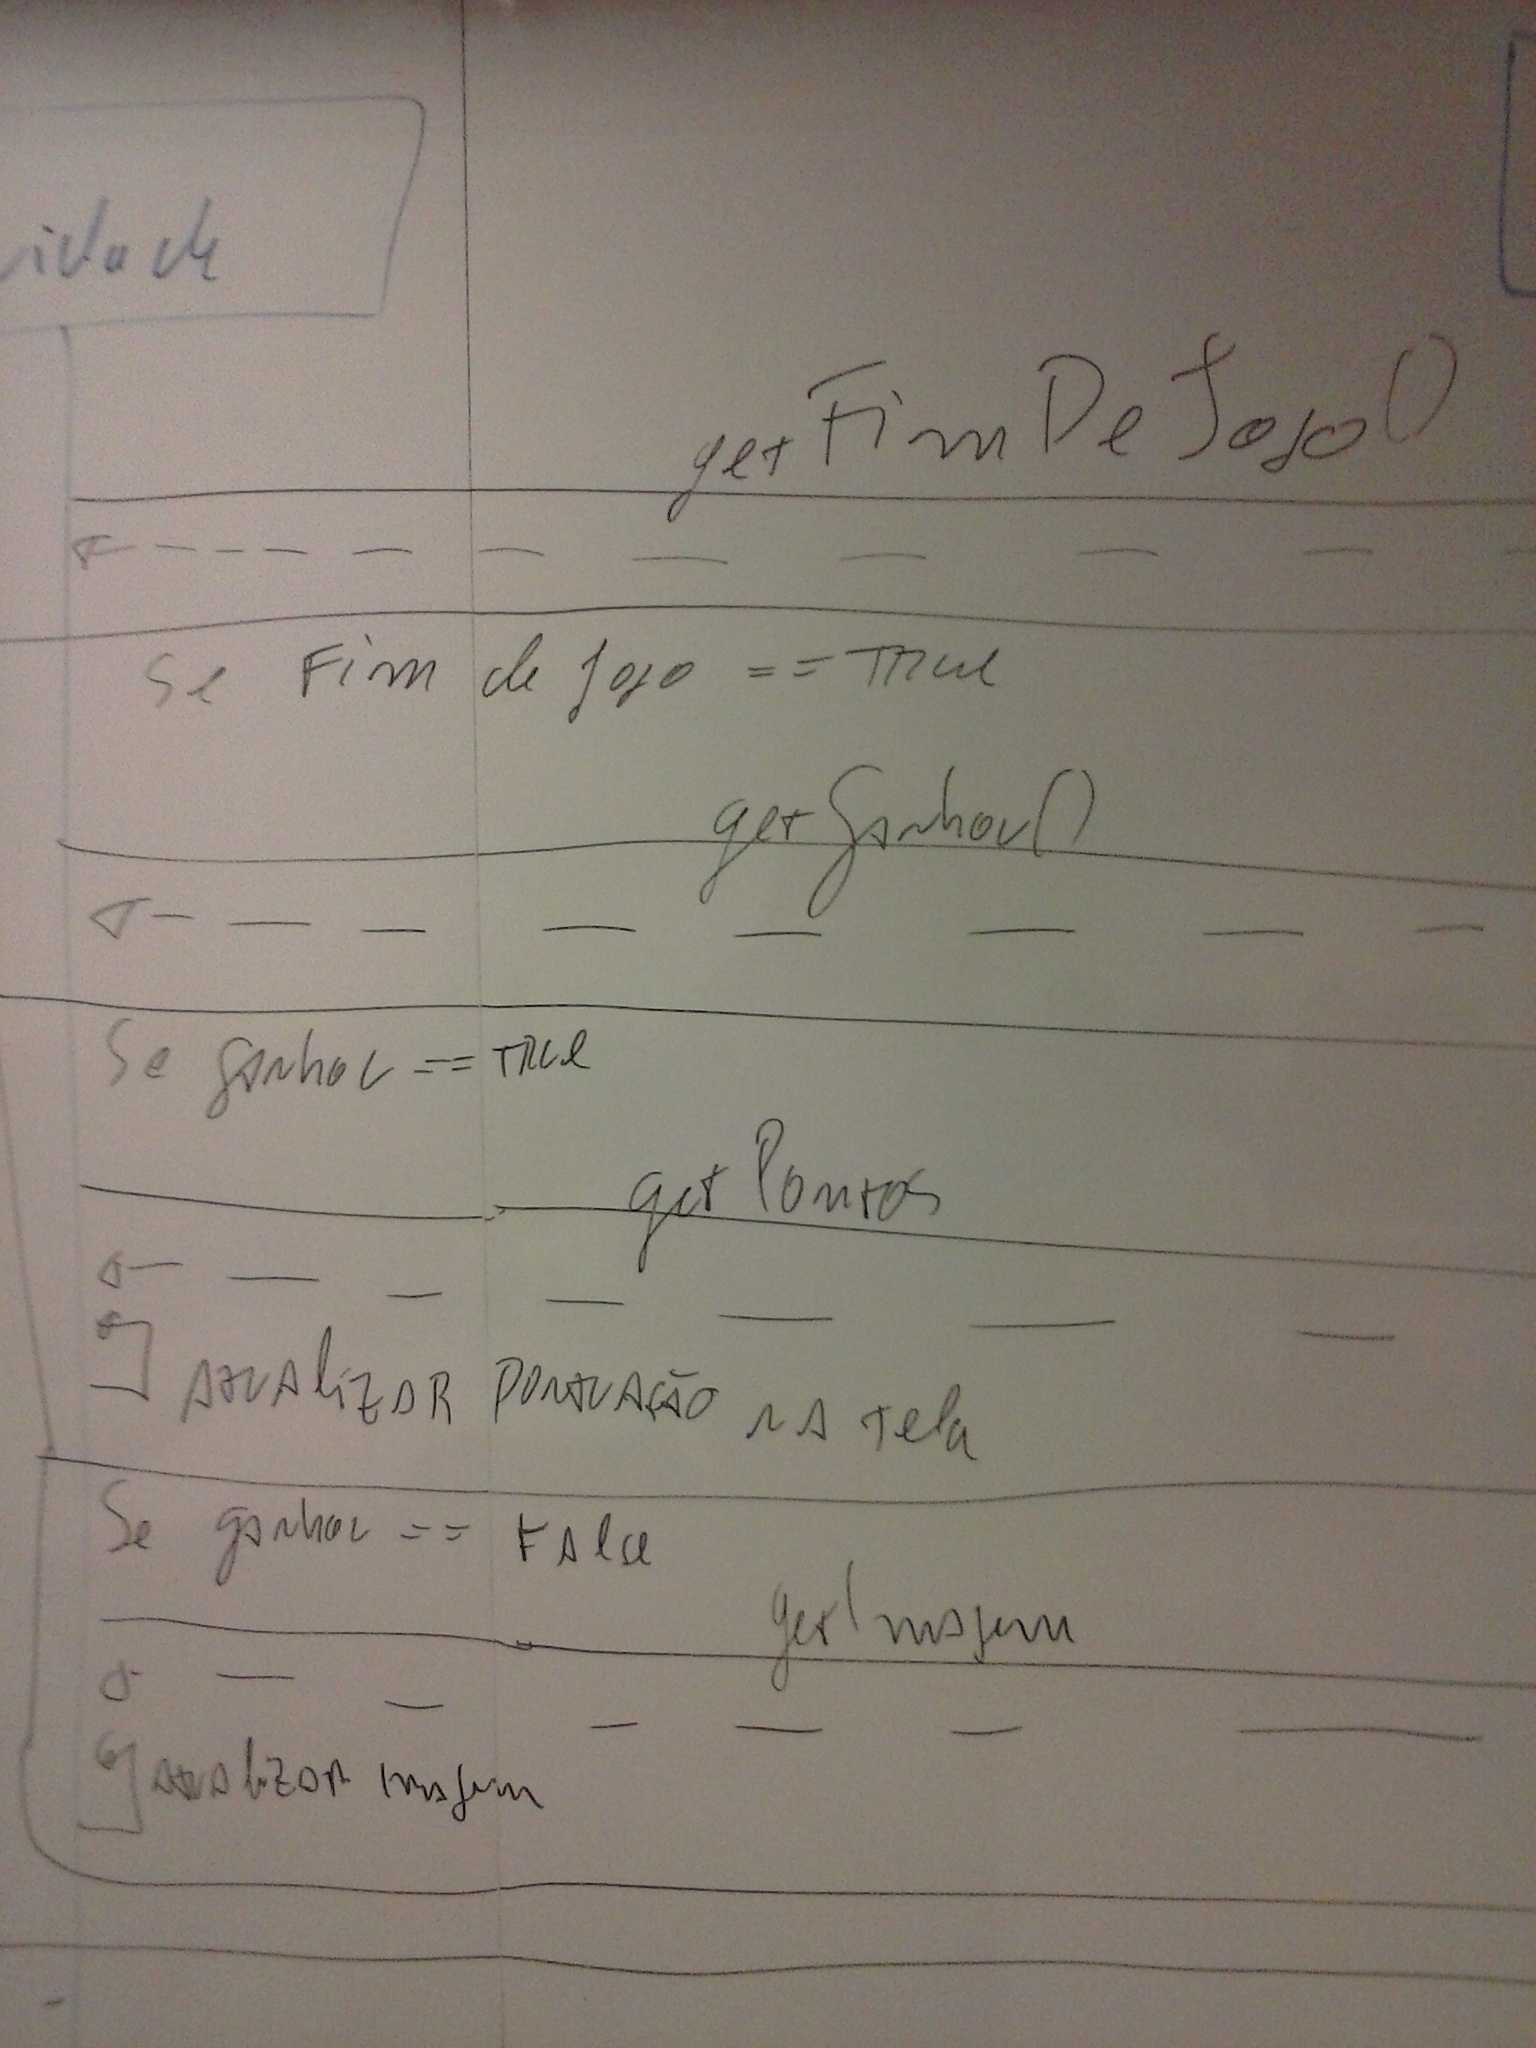 getFimDeJogo()
Se Fim de jogo == TRue
getGanhou()
Se ganhou == TRue
getPontos
Atualizar pontuação na tela
Se ganhou == False
getImagem
atualizar imagem